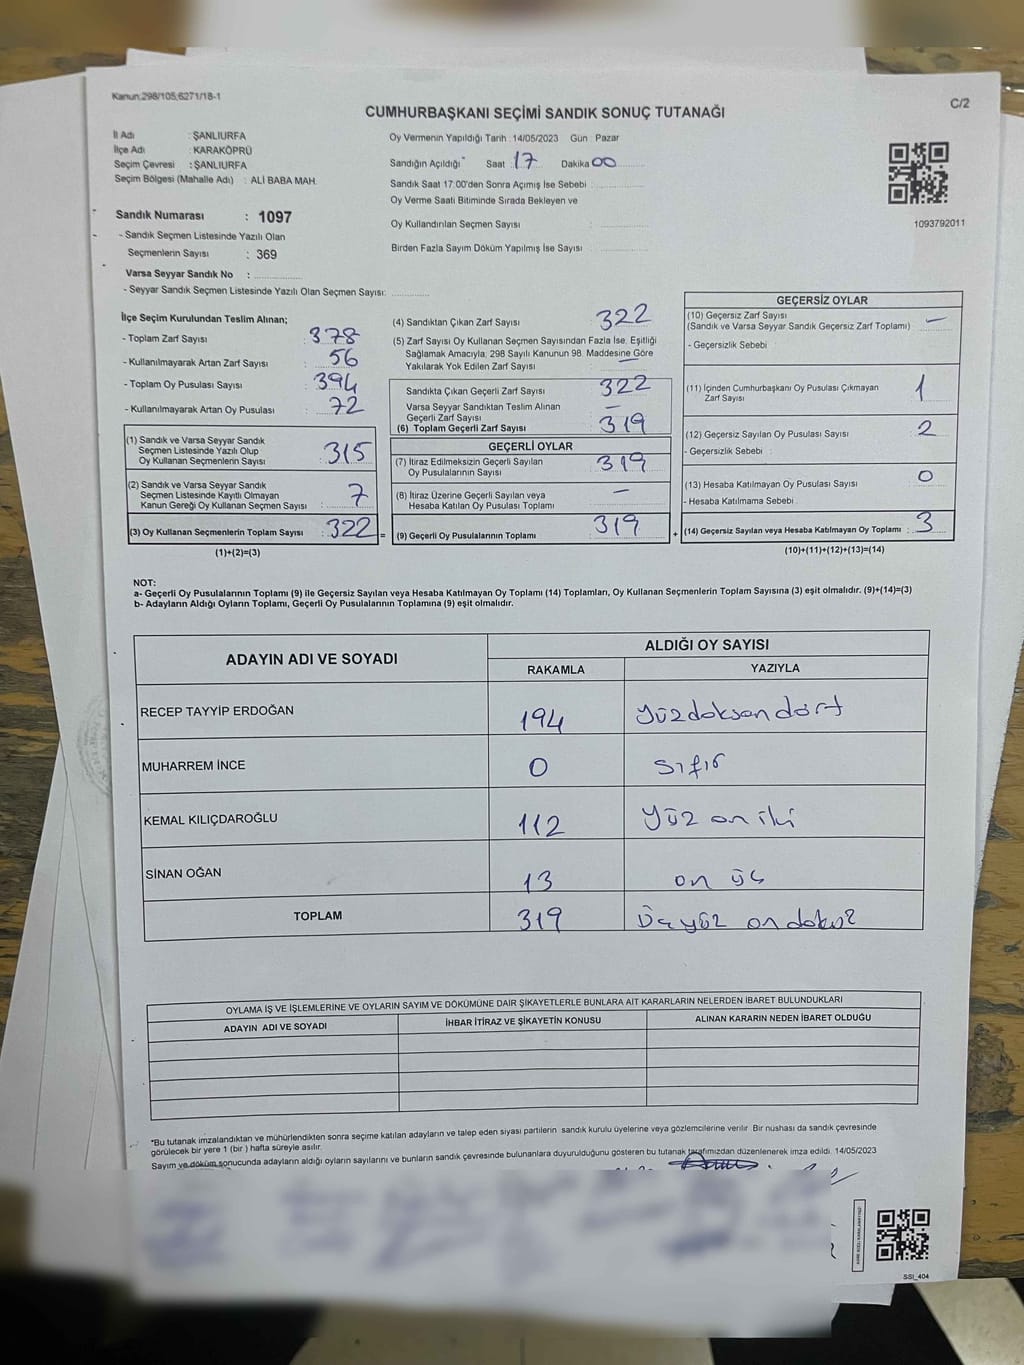 Kanun:298/105,6271/18-1
C/2
CUMHURBAŞKANI SEÇİMİ SANDIK SONUÇ TUTANAĞI
İl Adı : ŞANLIURFA
İlçe Adı : KARAKÖPRÜ
Seçim Çevresi : ŞANLIURFA
Seçim Bölgesi (Mahalle Adı) : ALİ BABA MAH.
Sandık Numarası : 1097
- Sandık Seçmen Listesinde Yazılı Olan
Seçmenlerin Sayısı : 369
Varsa Seyyar Sandık No :
- Seyyar Sandık Seçmen Listesinde Yazılı Olan Seçmen Sayısı:
Oy Vermenin Yapıldığı Tarih :14/05/2023 Gün : Pazar
Sandığın Açıldığı* Saat : 17 Dakika 00
Sandık Saat 17:00'den Sonra Açımış İse Sebebi :
Oy Verme Saati Bitiminde Sırada Bekleyen ve
Oy Kullandırılan Seçmen Sayısı :
Birden Fazla Sayım Döküm Yapılmış İse Sayısı :
1093792011
İlçe Seçim Kurulundan Teslim Alınan;
- Toplam Zarf Sayısı : 378
- Kullanılmayarak Artan Zarf Sayısı : 56
- Toplam Oy Pusulası Sayısı : 394
- Kullanılmayarak Artan Oy Pusulası : 72
(1) Sandık ve Varsa Seyyar Sandık
Seçmen Listesinde Yazılı Olup
Oy Kullanan Seçmenlerin Sayısı : 315
(2) Sandık ve Varsa Seyyar Sandık
Seçmen Listesinde Kayıtlı Olmayan
Kanun Gereği Oy Kullanan Seçmen Sayısı : 7
(3) Oy Kullanan Seçmenlerin Toplam Sayısı : 322 =
(1)+(2)=(3)
(4) Sandıktan Çıkan Zarf Sayısı : 322
(5) Zarf Sayısı Oy Kullanan Seçmen Sayısından Fazla İse, Eşitliği
Sağlamak Amacıyla, 298 Sayılı Kanunun 98. Maddesine Göre
Yakılarak Yok Edilen Zarf Sayısı : —
Sandıkta Çıkan Geçerli Zarf Sayısı : 322
Varsa Seyyar Sandıktan Teslim Alınan
Geçerli Zarf Sayısı : —
(6) Toplam Geçerli Zarf Sayısı : 319
GEÇERLİ OYLAR
(7) İtiraz Edilmeksizin Geçerli Sayılan
Oy Pusulalarının Sayısı : 319
(8) İtiraz Üzerine Geçerli Sayılan veya
Hesaba Katılan Oy Pusulası Toplamı : —
(9) Geçerli Oy Pusulalarının Toplamı : 319 +
GEÇERSİZ OYLAR
(10) Geçersiz Zarf Sayısı
(Sandık ve Varsa Seyyar Sandık Geçersiz Zarf Toplamı) : —
- Geçersizlik Sebebi :
(11) İçinden Cumhurbaşkanı Oy Pusulası Çıkmayan
Zarf Sayısı : 1
(12) Geçersiz Sayılan Oy Pusulası Sayısı : 2
- Geçersizlik Sebebi :
(13) Hesaba Katılmayan Oy Pusulası Sayısı : 0
- Hesaba Katılmama Sebebi :
(14) Geçersiz Sayılan veya Hesaba Katılmayan Oy Toplamı : 3
(10)+(11)+(12)+(13)=(14)
NOT:
a- Geçerli Oy Pusulalarının Toplamı (9) ile Geçersiz Sayılan veya Hesaba Katılmayan Oy Toplamı (14) Toplamları, Oy Kullanan Seçmenlerin Toplam Sayısına (3) eşit olmalıdır. (9)+(14)=(3)
b- Adayların Aldığı Oyların Toplamı, Geçerli Oy Pusulalarının Toplamına (9) eşit olmalıdır.
ADAYIN ADI VE SOYADI
ALDIĞI OY SAYISI
RAKAMLA YAZIYLA
RECEP TAYYİP ERDOĞAN 194 Yüzdoksan dört
MUHARREM İNCE 0 sıfır
KEMAL KILIÇDAROĞLU 112 Yüz on iki
SİNAN OĞAN 13 on üç
TOPLAM 319 Üç yüz on dokuz
OYLAMA İŞ VE İŞLEMLERİNE VE OYLARIN SAYIM VE DÖKÜMÜNE DAİR ŞİKAYETLERLE BUNLARA AİT KARARLARIN NELERDEN İBARET BULUNDUKLARI
ADAYIN ADI VE SOYADI İHBAR İTİRAZ VE ŞİKAYETİN KONUSU ALINAN KARARIN NEDEN İBARET OLDUĞU
*Bu tutanak imzalandıktan ve mühürlendikten sonra seçime katılan adayların ve talep eden siyasi partilerin sandık kurulu üyelerine veya gözlemcilerine verilir. Bir nüshası da sandık çevresinde
görülecek bir yere 1 (bir ) hafta süreyle asılır.
Sayım ve döküm sonucunda adayların aldığı oyların sayılarını ve bunların sandık çevresinde bulunanlara duyurulduğunu gösteren bu tutanak tarafımızdan düzenlenerek imza edildi. 14/05/2023
SSI_404